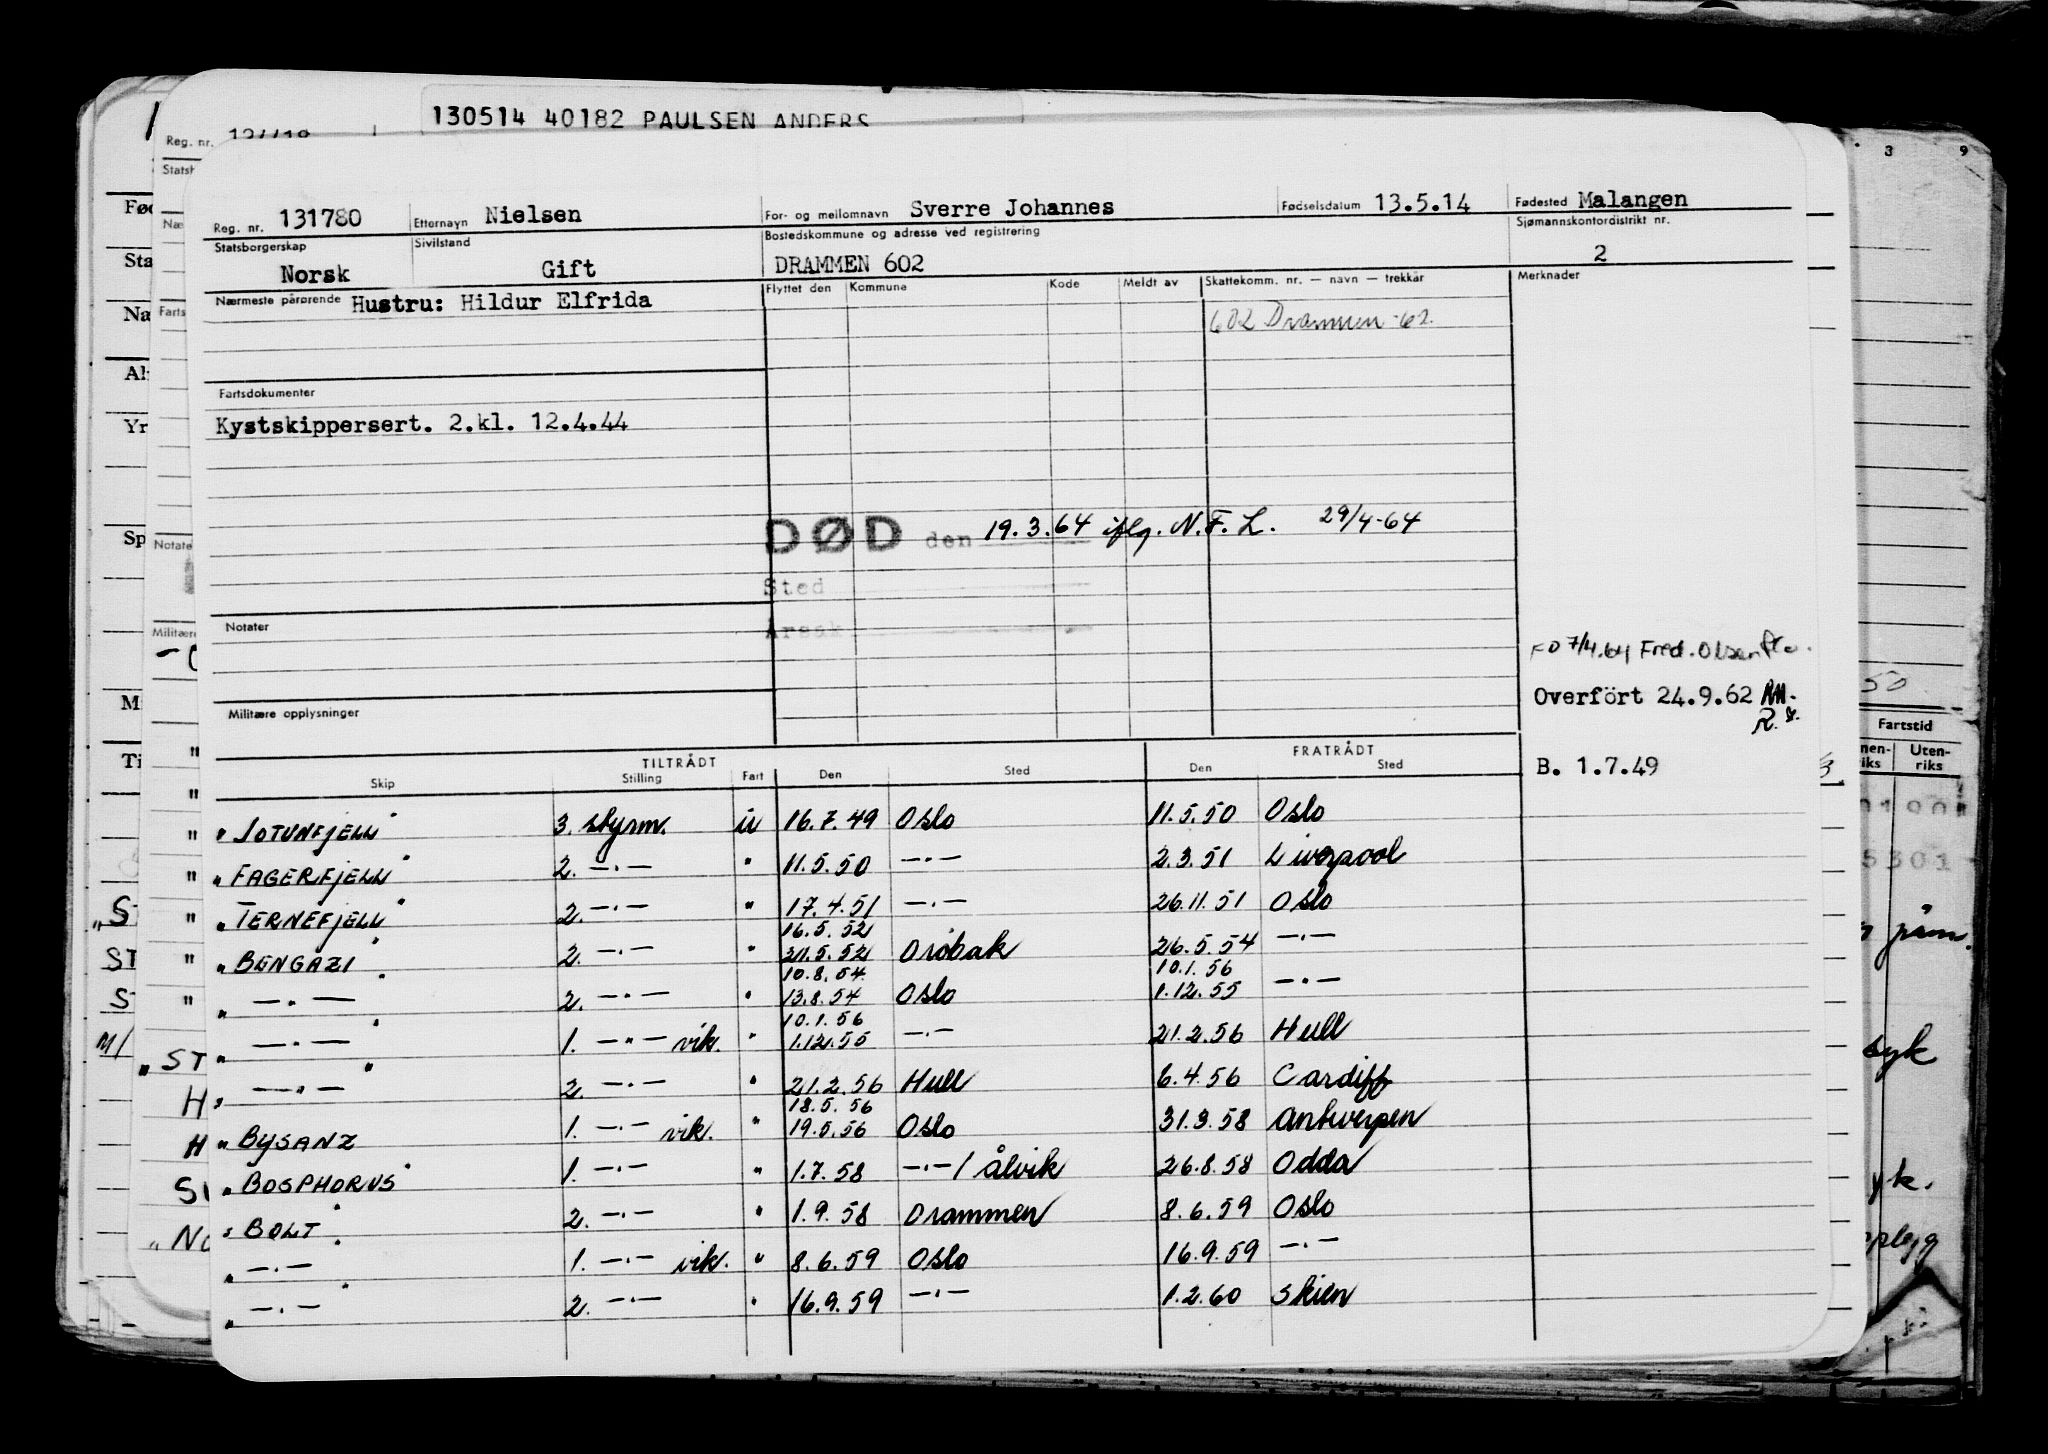 130514 40182 PAULSEN ANDERS
Reg. nr. 131780 Etternavn Nielsen For- og mellomnavn Sverre Johannes Fødselsdatum 13.5.14 Fødested Malangen
Statsborgerskap Norsk Sivilstand Gift Bostedskommune og adresse ved registrering DRAMMEN 602 Sjømannskontordistrikt nr. 2
Nærmeste pårørende Hustru: Hildur Elfrida Flyttet den Kommune Kode Meldt av Skattekomm. nr. — navn — trekkår Merknader
602 Drammen -62.
Fartsdokumenter
Kystskippersert. 2.kl. 12.4.44
DØD den 19.3.64 iflg. N.F.L. 29/4-64
Sted
Årsak
Notater
FD 7/4.64 Fred. Olsen
Overfört 24.9.62
Militære opplysninger
B. 1.7.49
TILTRÅDT FRATRÅDT
Skip Stilling Fart Den Sted Den Sted
" JOTUNFJELL" 3. styrm. u 16.7.49 Oslo 11.5.50 Oslo
" FAGERFJELL" 2. —·— " 11.5.50 —·— 2.3.51 Liverpool
" TERNEFJELL" 2. —·— " 17.4.51 —·— 26.11.51 Oslo
16.5.52
" BENGAZI" 2. —·— " 21.5.52 Drøbak 26.5.54 —·—
10.8.54 10.1.56
" —·— " 2. —·— " 13.8.54 Oslo 1.12.55 —·—
10.1.56
" —·— " 1. —·— vik. " 1.12.55 —·— 21.2.56 Hull
" —·— " 2. —·— " 21.2.56 Hull 6.4.56 Cardiff
18.5.56
" BYSANZ 1. —·— vik. " 19.5.56 Oslo 31.3.58 Antwerpen
" BOSPHORUS" 1. —·— " 1.7.58 —·—/ Ålvik 26.8.58 Odda
" BOLT" 2. —·— " 1.9.58 Drammen 8.6.59 Oslo
" —·— " 1. —·— vik. " 8.6.59 Oslo 16.9.59 —·—
" —·— " 2. —·— " 16.9.59 —·— 1.2.60 Skien
3 9
50
Fartstid
Uten-
riks
syk
yk.